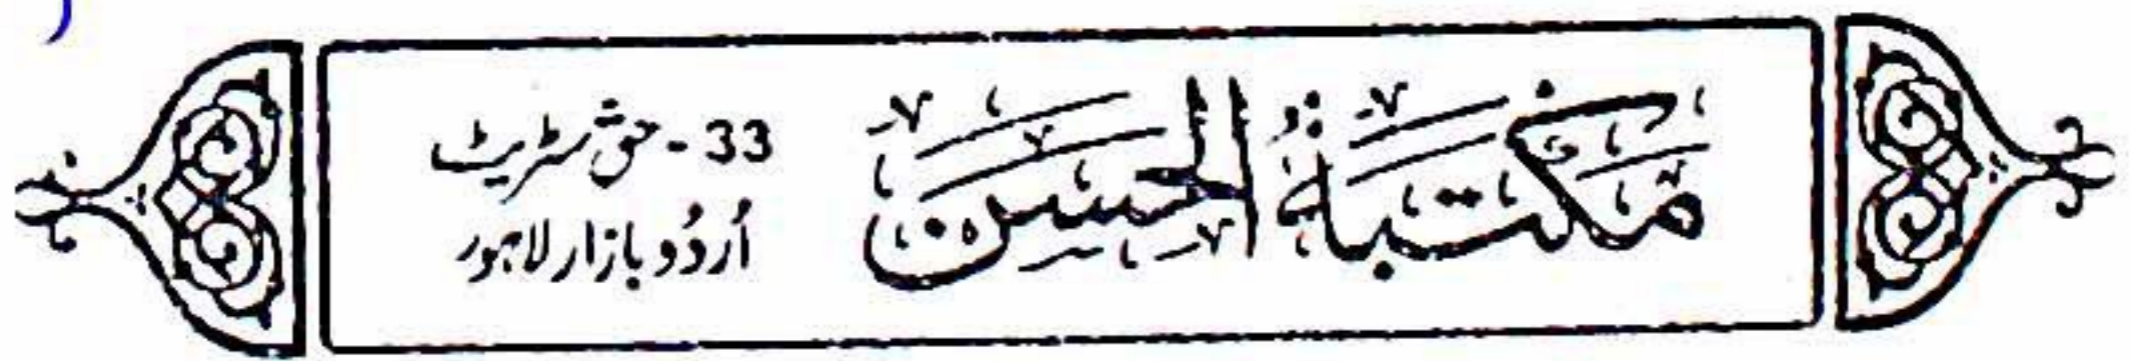 مکتبۃُ الحسن
33 - حق سٹریٹ
اُردُو بازار لاہور